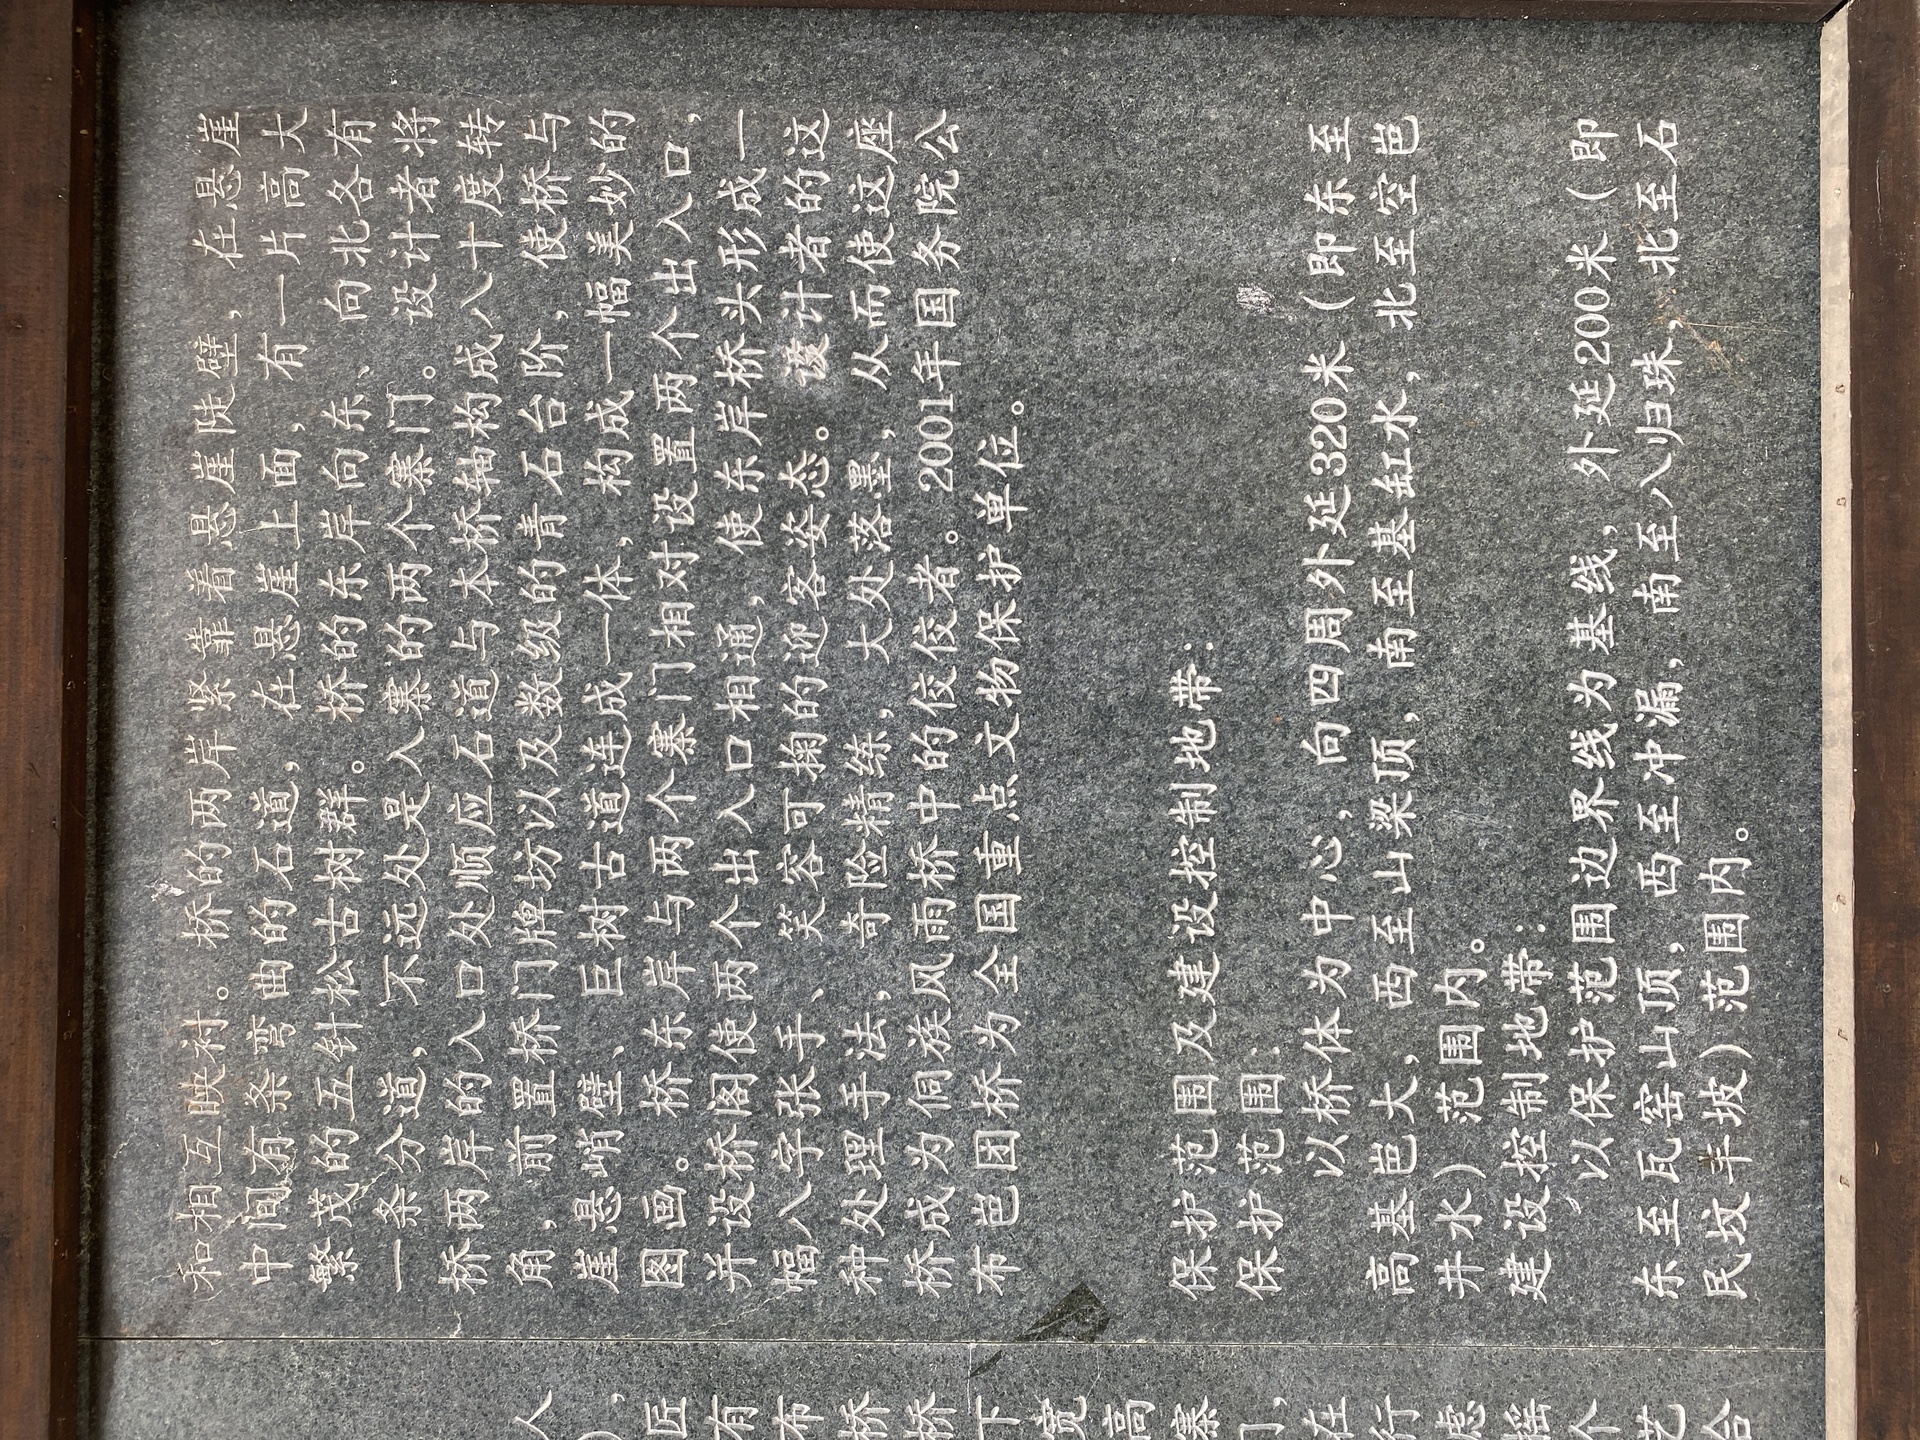 人
，
匠
有
布
桥
桥
下
宽
高
寨
门
在
行
虑
摇
个
艺
合
和相互映衬。桥的两岸紧靠着悬崖陡壁，在悬崖
中间有条弯曲的石道，在悬崖上面，有一片高大
繁茂的五针松古树群。桥的东岸向东、向北各有
一条分道，不远处是入寨的两个寨门。设计者将
桥两岸的入口处顺应石道与本桥轴构成八十度转
角，前置桥门牌坊以及数级的青石台阶，使桥与
崖悬峭壁、巨树古道连成一体，构成一幅美妙的
图画。桥东岸与两个寨门相对设置两个出入口，
并设桥阁使两个出入口相通，使东岸桥头形成一
幅八字张手、笑容可掬的迎客姿态。设计者的这
种处理手法，奇险精练，大处落墨，从而使这座
桥成为侗族风雨桥中的佼佼者。2001年国务院公
布岜团桥为全国重点文物保护单位。
保护范围及建设控制地带：
保护范围：
以桥体为中心，向四周外延320米（即东至
高基岜大，西至山梁顶，南至基缸水，北至空岜
井水）范围内。
建设控制地带：
以保护范围边界线为基线，外延200米（即
东至瓦窑山顶，西至冲漏，南至八归珠，北至石
民坟羊坡）范围内。